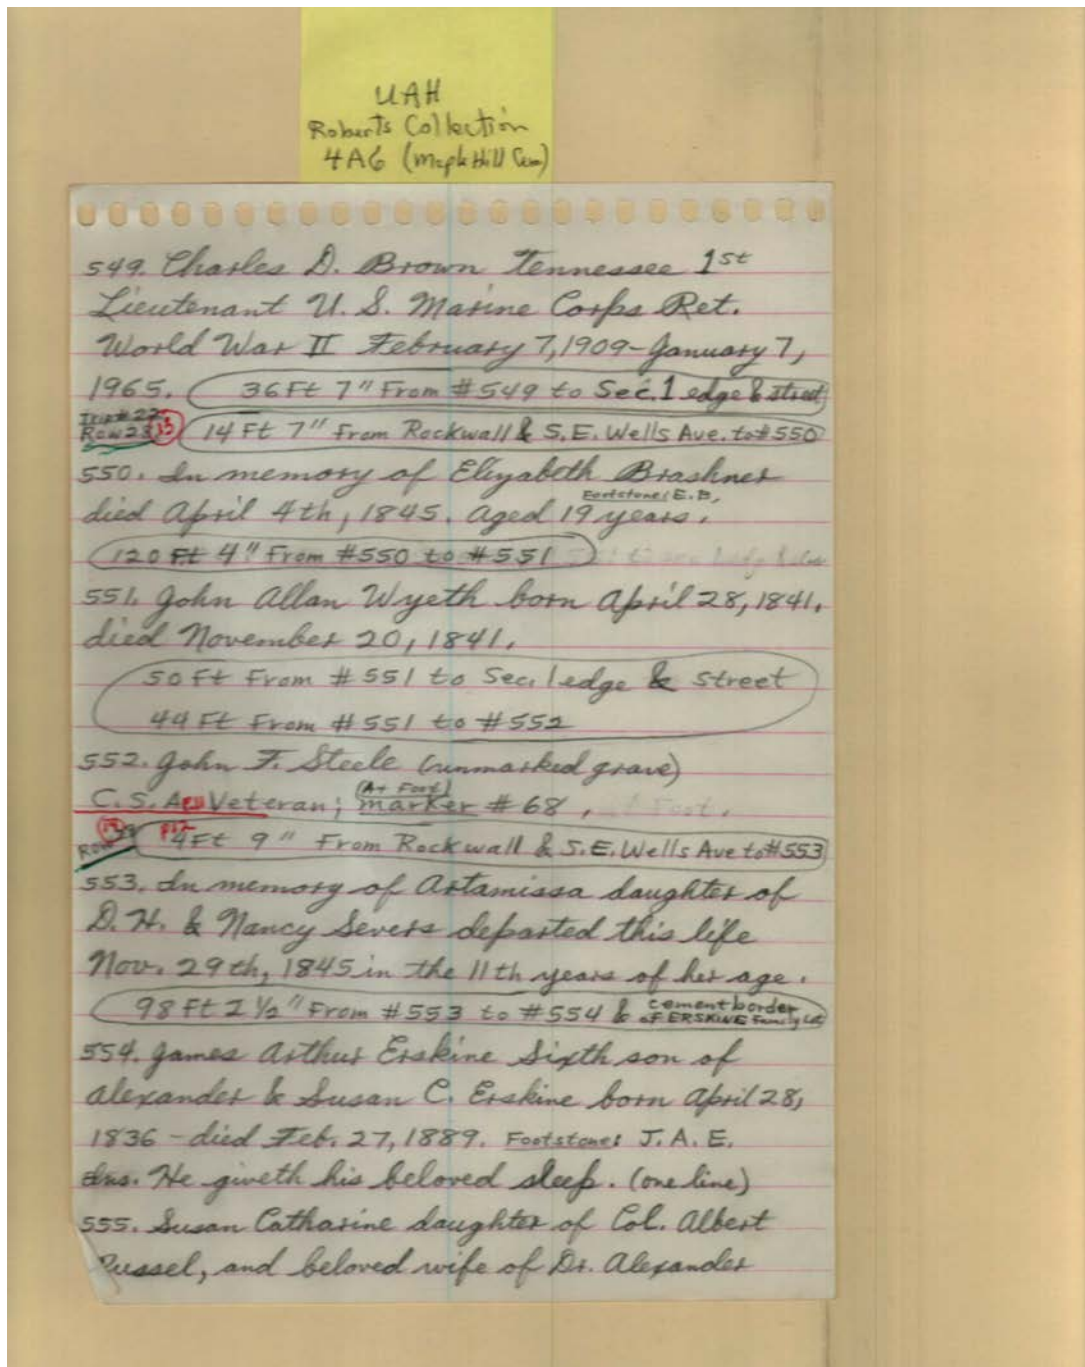 UAH
Roberts Collection
4A6 (Maple Hill Cem)
549. Charles D. Brown Tennessee 1st
Lieutenant U. S. Marine Corps Ret.
World War II February 7, 1909-January 7,
1965. 36 Ft 7" From #549 to Sec. 1 edge & street
Trip #22
Row 23 13 14 Ft 7" From Rockwall & S.E. Wells Ave. to #550
550. In memory of Elizabeth Brashner
Footstone: E.B.
died April 4th, 1845. Aged 19 years.
120 Ft 4" From #550 to #551
551. John Allan Wyeth born April 28, 1841.
died November 20, 1841.
50 Ft From #551 to Sec. 1 edge & street
44 Ft From #551 to #552
552. John F. Steele (unmarked grave)
(At Foot)
C.S.A. Veteran; marker #68,
Row 4 Ft 9" From Rockwall & S.E. Wells Ave to #553
553. In memory of Artamissa daughter of
D. H. & Nancy Severs departed this life
Nov. 29th, 1845 in the 11th years of her age.
98 Ft 2 1/2" From #553 to #554 & cement border
of ERSKINE Family Lot
554. James Arthur Erskine Sixth son of
Alexander & Susan C. Erskine born April 28,
1836 - died Feb. 27, 1889. Footstone: J. A. E.
Ins. He giveth his beloved sleep. (one line)
555. Susan Catharine daughter of Col. Albert
Russel, and beloved wife of Dr. Alexander